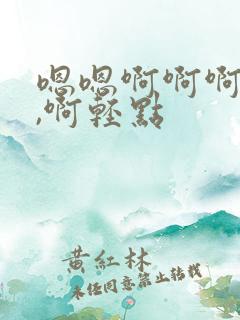 嗯嗯啊啊啊
,啊轻點
黄紅林
未任同意禁止转载